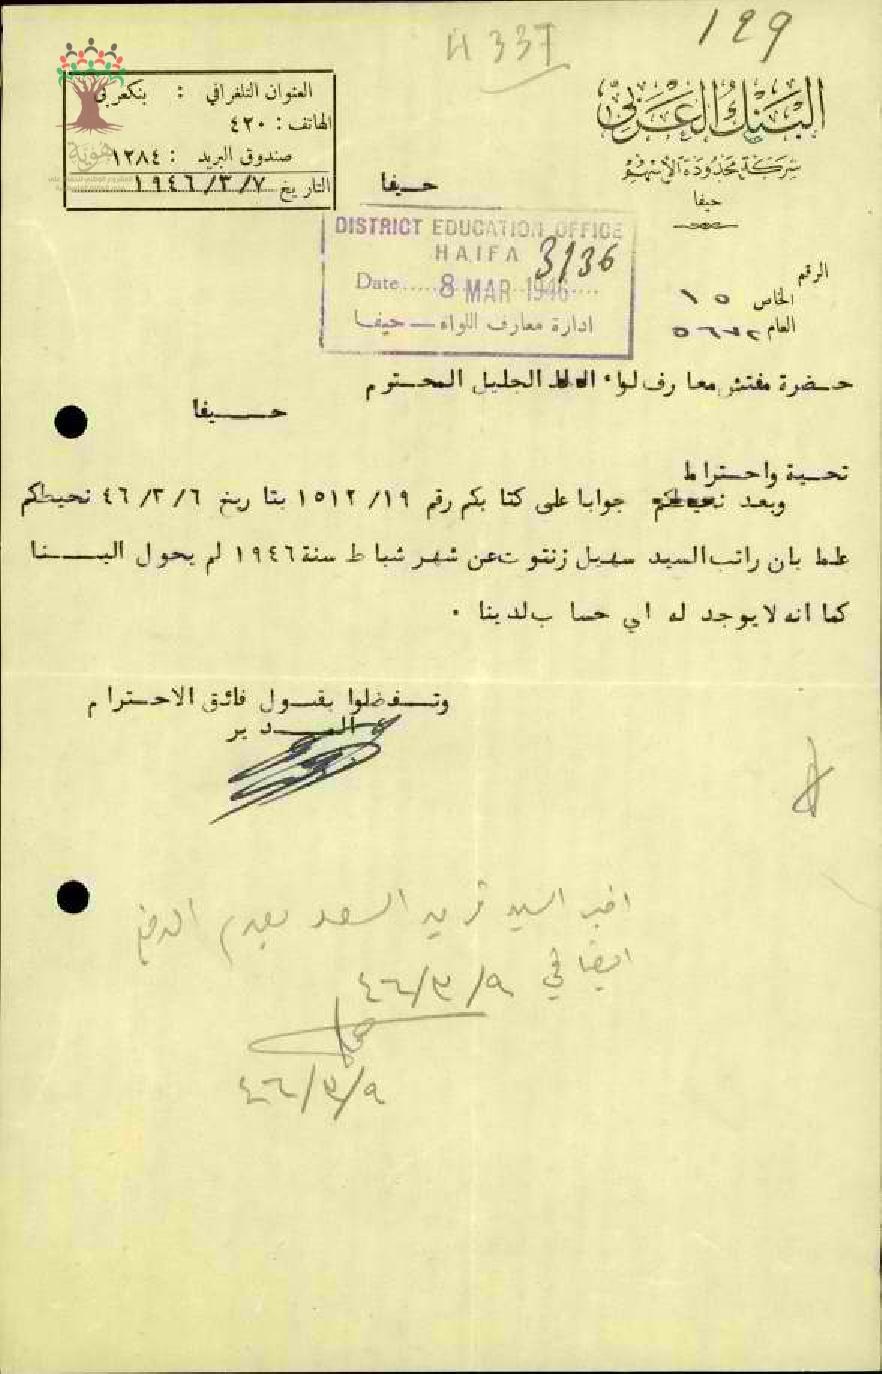 129
H 337
البنك العربي
شركة محدودة الأسهم
حيفا
العنوان التلغرافي : بنكعربي
الهاتف : ٤٢٠
صندوق البريد : ١٢٨٤
التاريخ ١٩٤٦/٣/٧
حيفا
هوية
DISTRICT EDUCATION OFFICE
HAIFA
3/36
Date 8 MAR 1946
ادارة معارف اللواء – حيفا
الرقم
الخاص ١٥
العام ٥٦٧٢
حضرة مفتش معارف لواء الجليل المحترم
حيفا
تحية واحتراما
وبعد جوابا على كتابكم رقم ١٥١٢/١٩ بتاريخ ٤٦/٣/٦ نحيطكم
علما بان راتب السيد سهيل زنتوت عن شهر شباط سنة ١٩٤٦ لم يحول الينا
كما انه لا يوجد له اي حساب لدينا .
وتفضلوا بقبول فائق الاحترام
المدير
اخبر السيد فريد السعد بعدم الدفع
ايضا في ٤٦/٣/٩
٤٦/٣/٩